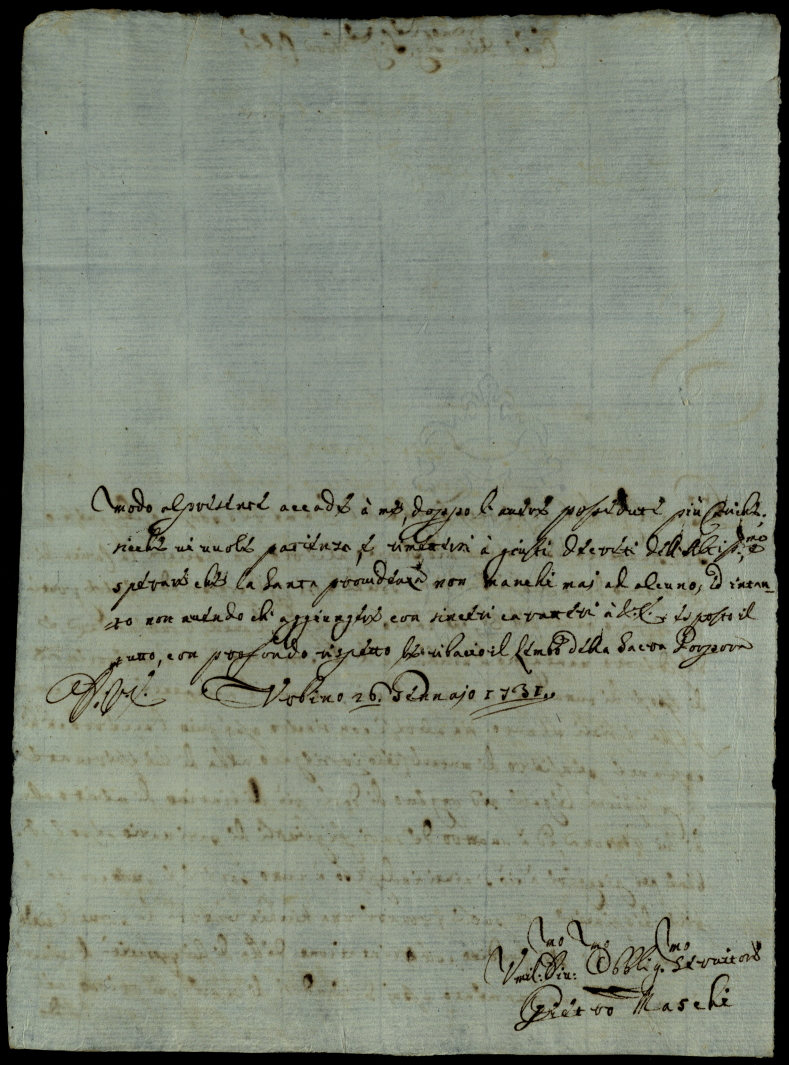 modo al presente accade à me, doppo le avere possedute più Cariche.
sicche vi vuole patienza, e rimettersi à giusti decreti dell'Altiss.mo e
sperare che la Santa providenza non manchi mai ad alcuno, ed intan-
to non avendo che aggiungere con sinceri caratteri à V.E. esposto il
tutto, con profondo rispetto le ribacio il lembo della Sacra Porpora
D. V. E. Urbino 26. Gennajo 1731.
Umil.mo Div.mo Obblig.mo Servitore
Pietro Maschi